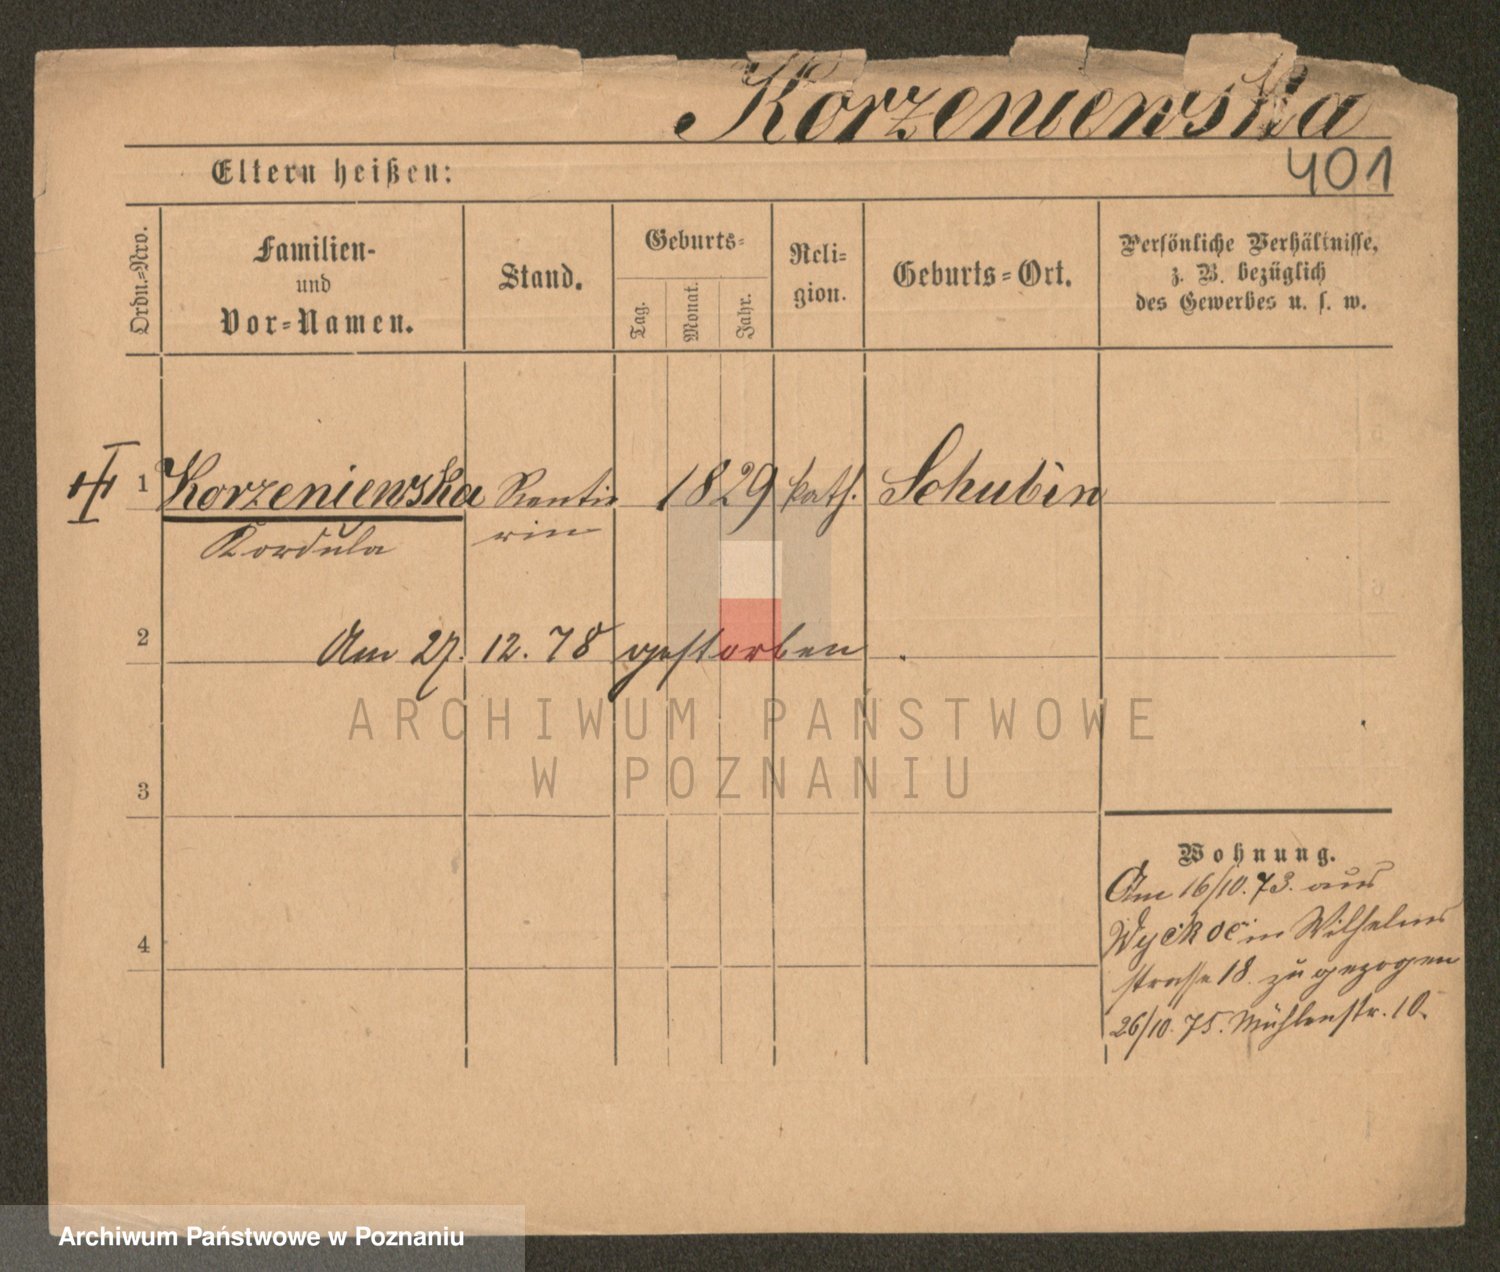 Korzeniewska
401
Eltern heißen:
Ordn.=Nro.
Familien-
und
Vor=Namen.
Stand.
Geburts=
Tag.
Monat.
Jahr.
Reli=
gion.
Geburts=Ort.
Persönliche Verhältnisse,
z. B. bezüglich
des Gewerbes u. s. w.
1 Korzeniewska Rentie 1829 kath. Schubin
Kordula rin
2 Am 27. 12. 78 gestorben.
ARCHIWUM PAŃSTWOWE
W POZNANIU
3
Wohnung.
Am 16/10. 73. aus
in Wilhelms
4
strasse 18. zu gezogen
26/10. 75. Mühlenstr. 10.
Archiwum Państwowe w Poznaniu